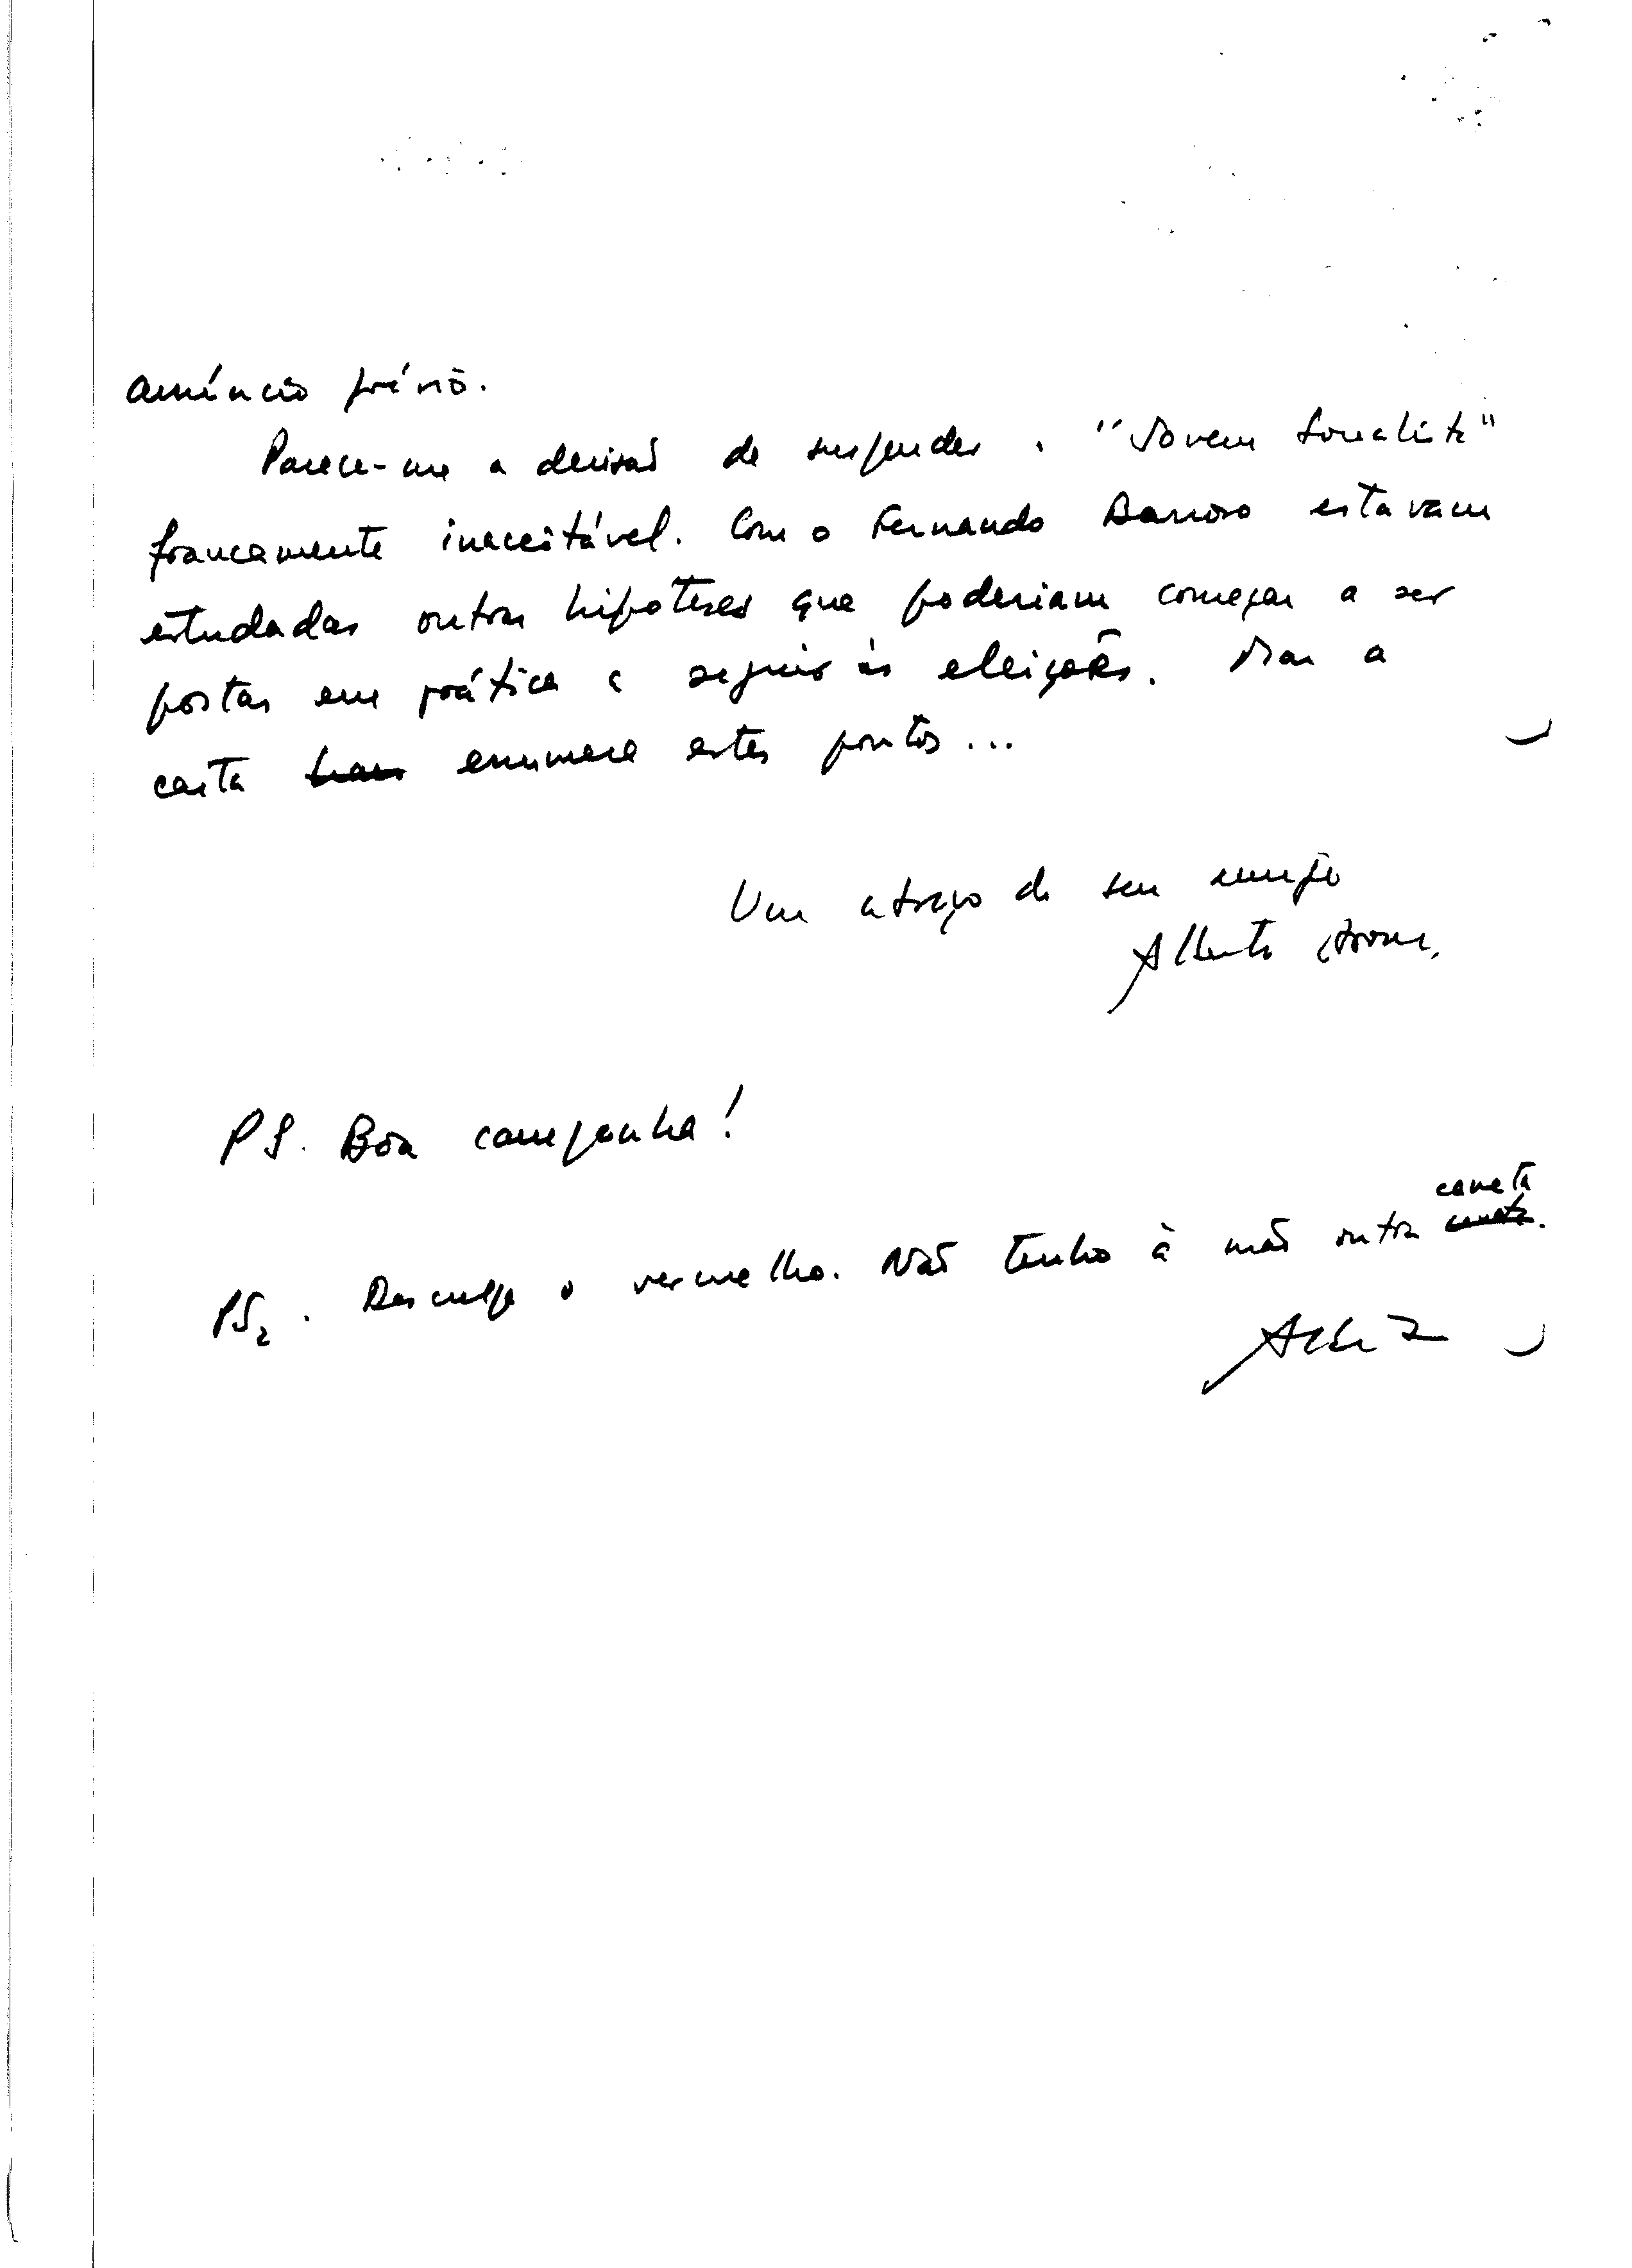 anúncio prévio.
Parece-me a decisão de suspender o "Jovem Socialista"
francamente inaceitável. Com o Fernando Barroso estavam
estudadas outras hipoteses que poderiam começar a ser
postas em prática a seguir às eleições. Mas a
carta enumera estes pontos...
Um abraço do seu amigo
Alberto
PS. Boa campanha!
caneta
PS2. Desculpe o vermelho. Não tenho à mão outra